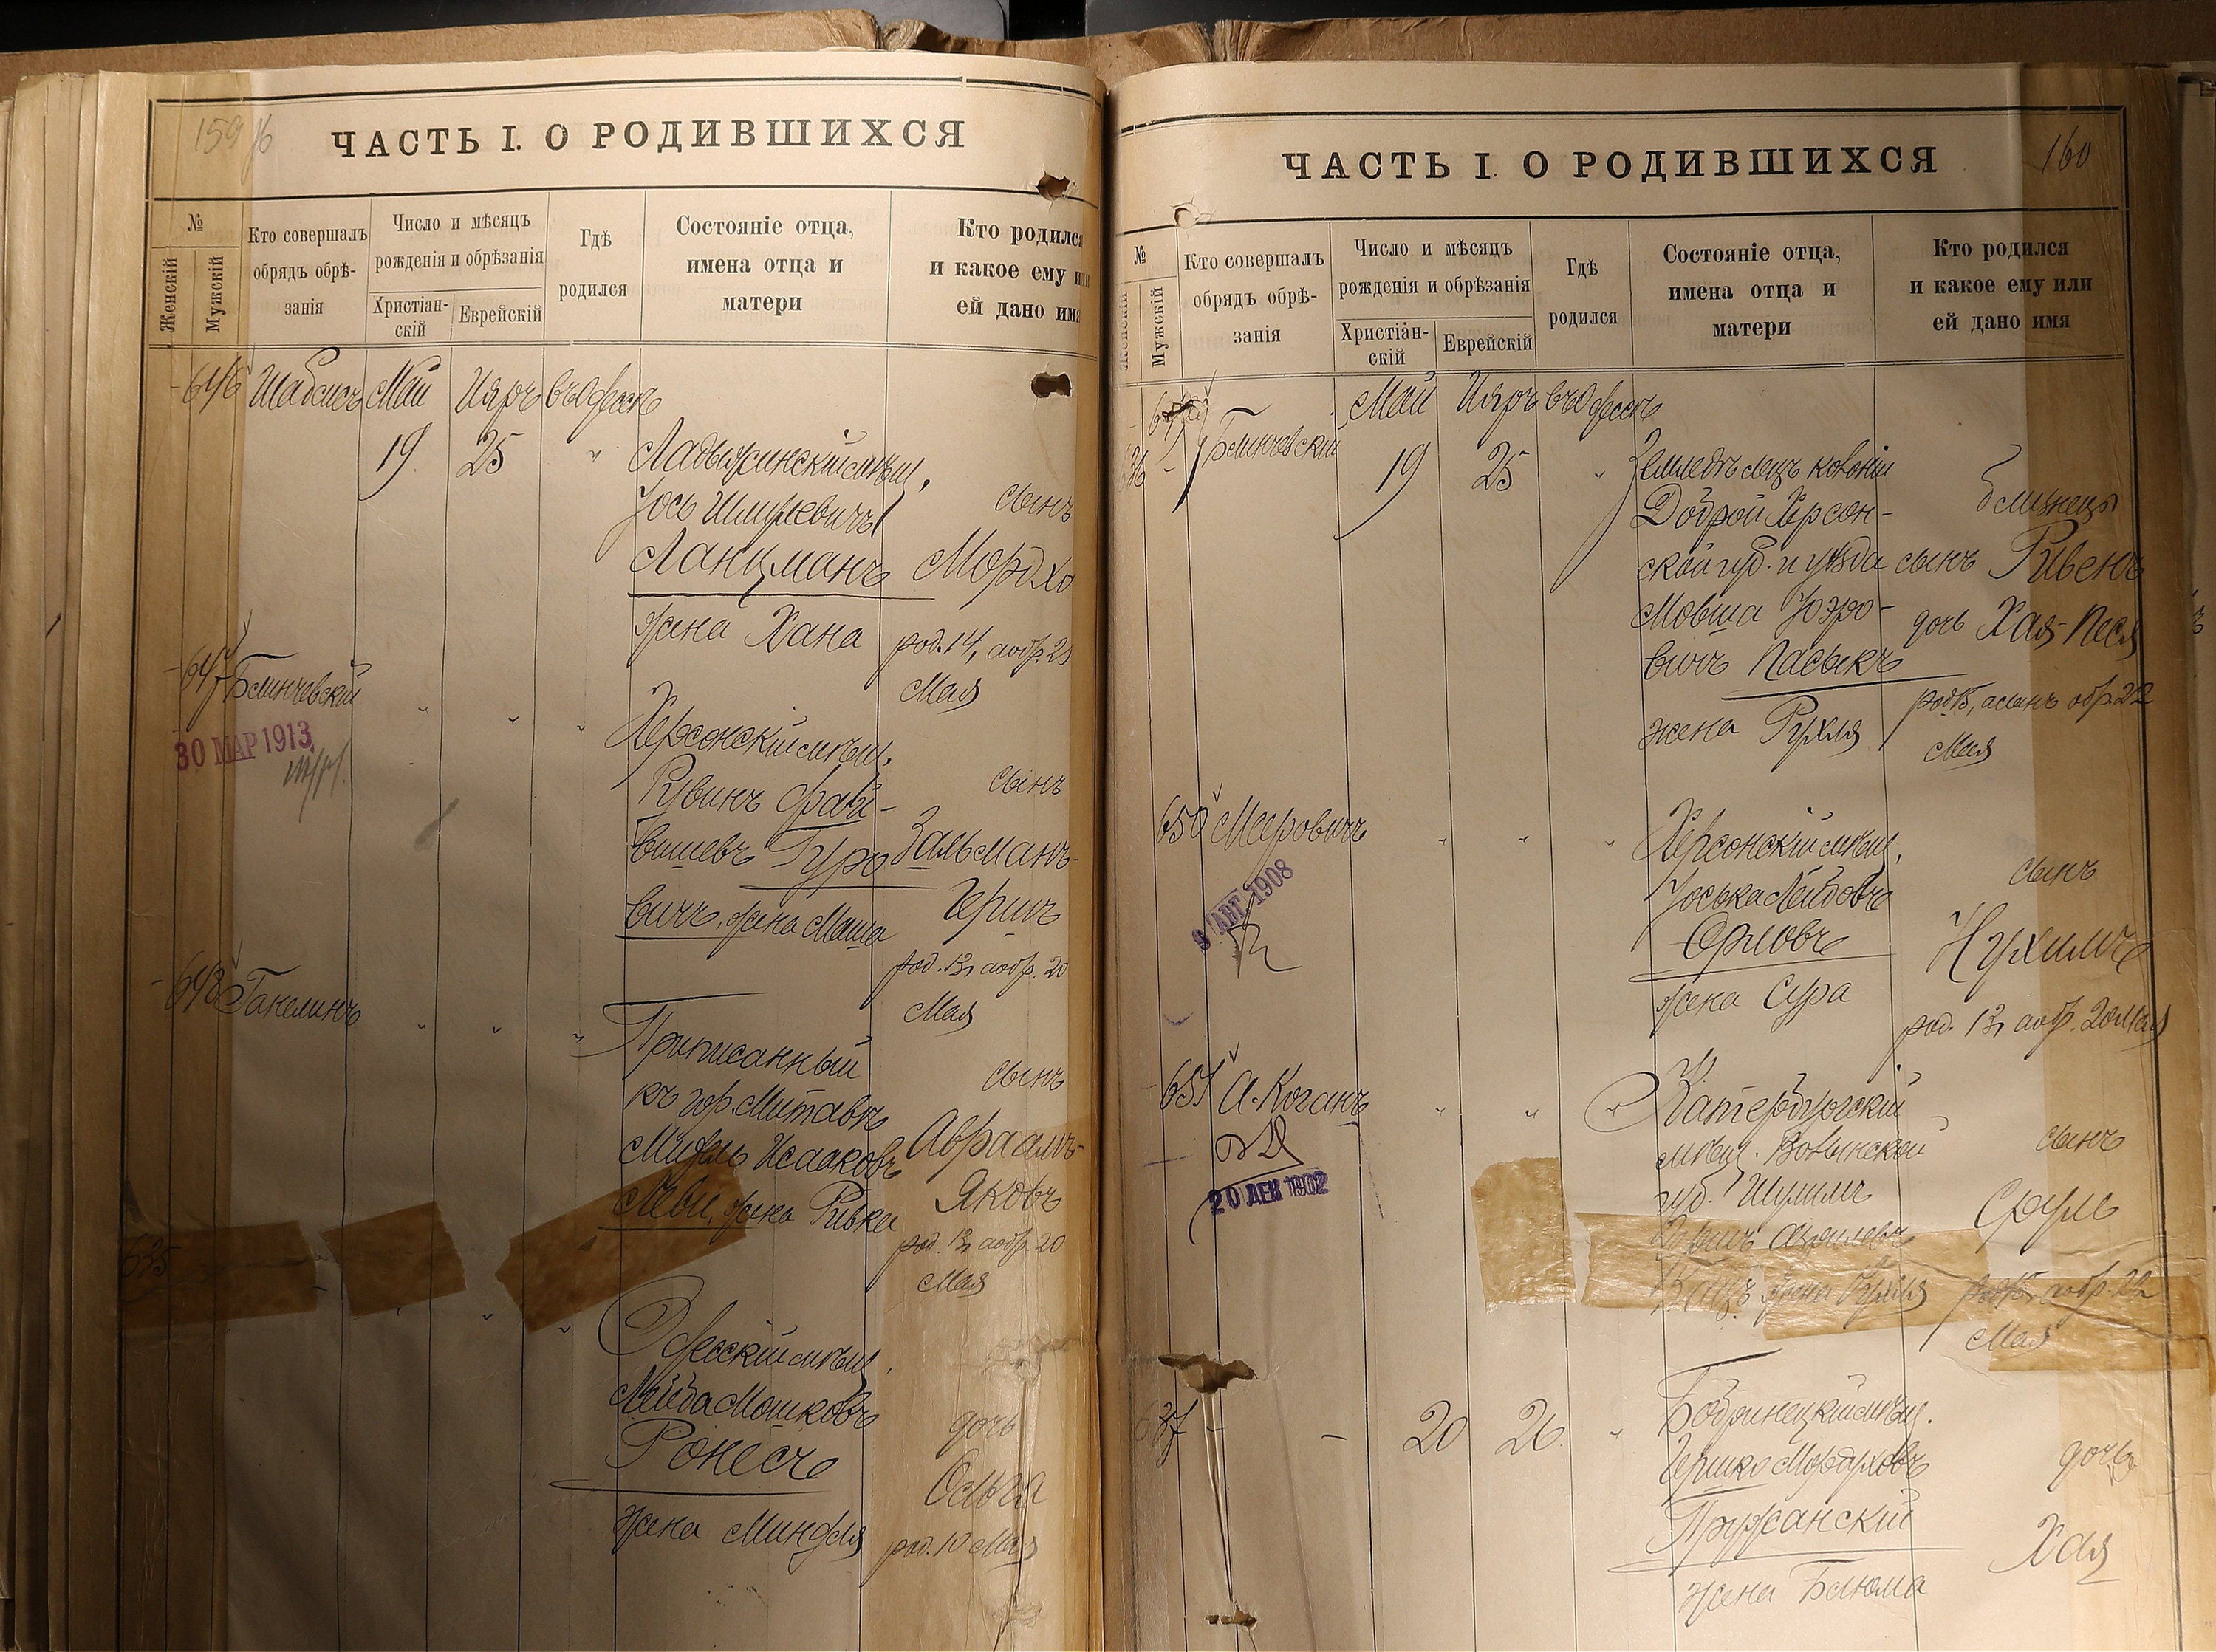 159
ЧАСТЬ I. О РОДИВШИХСЯ
№
Женскій
Мужскій
Кто совершалъ
обрядъ обрѣ-
занія
Число и мѣсяцъ
рожденія и обрѣзанія
Христіан-
скій
Еврейскій
Гдѣ
родился
Состояніе отца,
имена отца и
матери
Кто родился
и какое ему или
ей дано имя
646 Шабсисъ Май Ияръ въ Одессѣ
19 25 " Ладыжинскій мѣщ.
Іось Шмулевичъ
Ланцманъ
жена Хана
сынъ
Мордхо
род. 14, а обр. 21
Мая
647 Блинчевскій " " "
30 МАР 1913
Херсонскій мѣщ.
Рувинъ Фай-
вишевъ Гуро
вичъ, жена Маша
сынъ
Залманъ-
Гершъ
род. 13, а обр. 20
Мая
648 Ганелинъ " " "
Приписанный
къ гор. Митавѣ
Исааковъ
Леви, жена Ривка
сынъ
Авраамъ-
Яковъ
род. 13, а обр. 20
Мая
635 " " "
Одесскій мѣщ.
Лейба Мошковъ
Ронесъ
жена Миндля
дочь
Ольга
род. 10 Мая
160
ЧАСТЬ I. О РОДИВШИХСЯ
№
Женскій
Мужскій
Кто совершалъ
обрядъ обрѣ-
занія
Число и мѣсяцъ
рожденія и обрѣзанія
Христіан-
скій
Еврейскій
Гдѣ
родился
Состояніе отца,
имена отца и
матери
Кто родился
и какое ему или
ей дано имя
Май Ияръ въ Одессѣ
636 Блинчевскій 19 25 "
Земледѣлецъ колоніи
Доброй Херсон-
ской губ. и уѣзда
Мовша
вичъ Пасыкъ
жена Рухля
близнецы
сынъ Рувенъ
дочь Хая-Песя
род. 15, а сынъ обр. 22
Мая
650 Мееровичъ " " "
АВГ 1908
Херсонскій мѣщ.
Іоська Лейбовъ
Орловъ
жена Сура
сынъ
Нухимъ
род. 13, а обр. 20 Мая
651 А. Коганъ " " "
20 ДЕК 1902
Катербургскій
мѣщ. Волынской
губ. Шулимъ
Гершъ
Кацъ, жена Рухля
сынъ
Сруль
род. 15, а обр. 22
Мая
637 - - 20 26 "
Бобринецкій мѣщ.
Гершко Мордуховъ
Пружанскій
жена Блюма
дочь
Хая